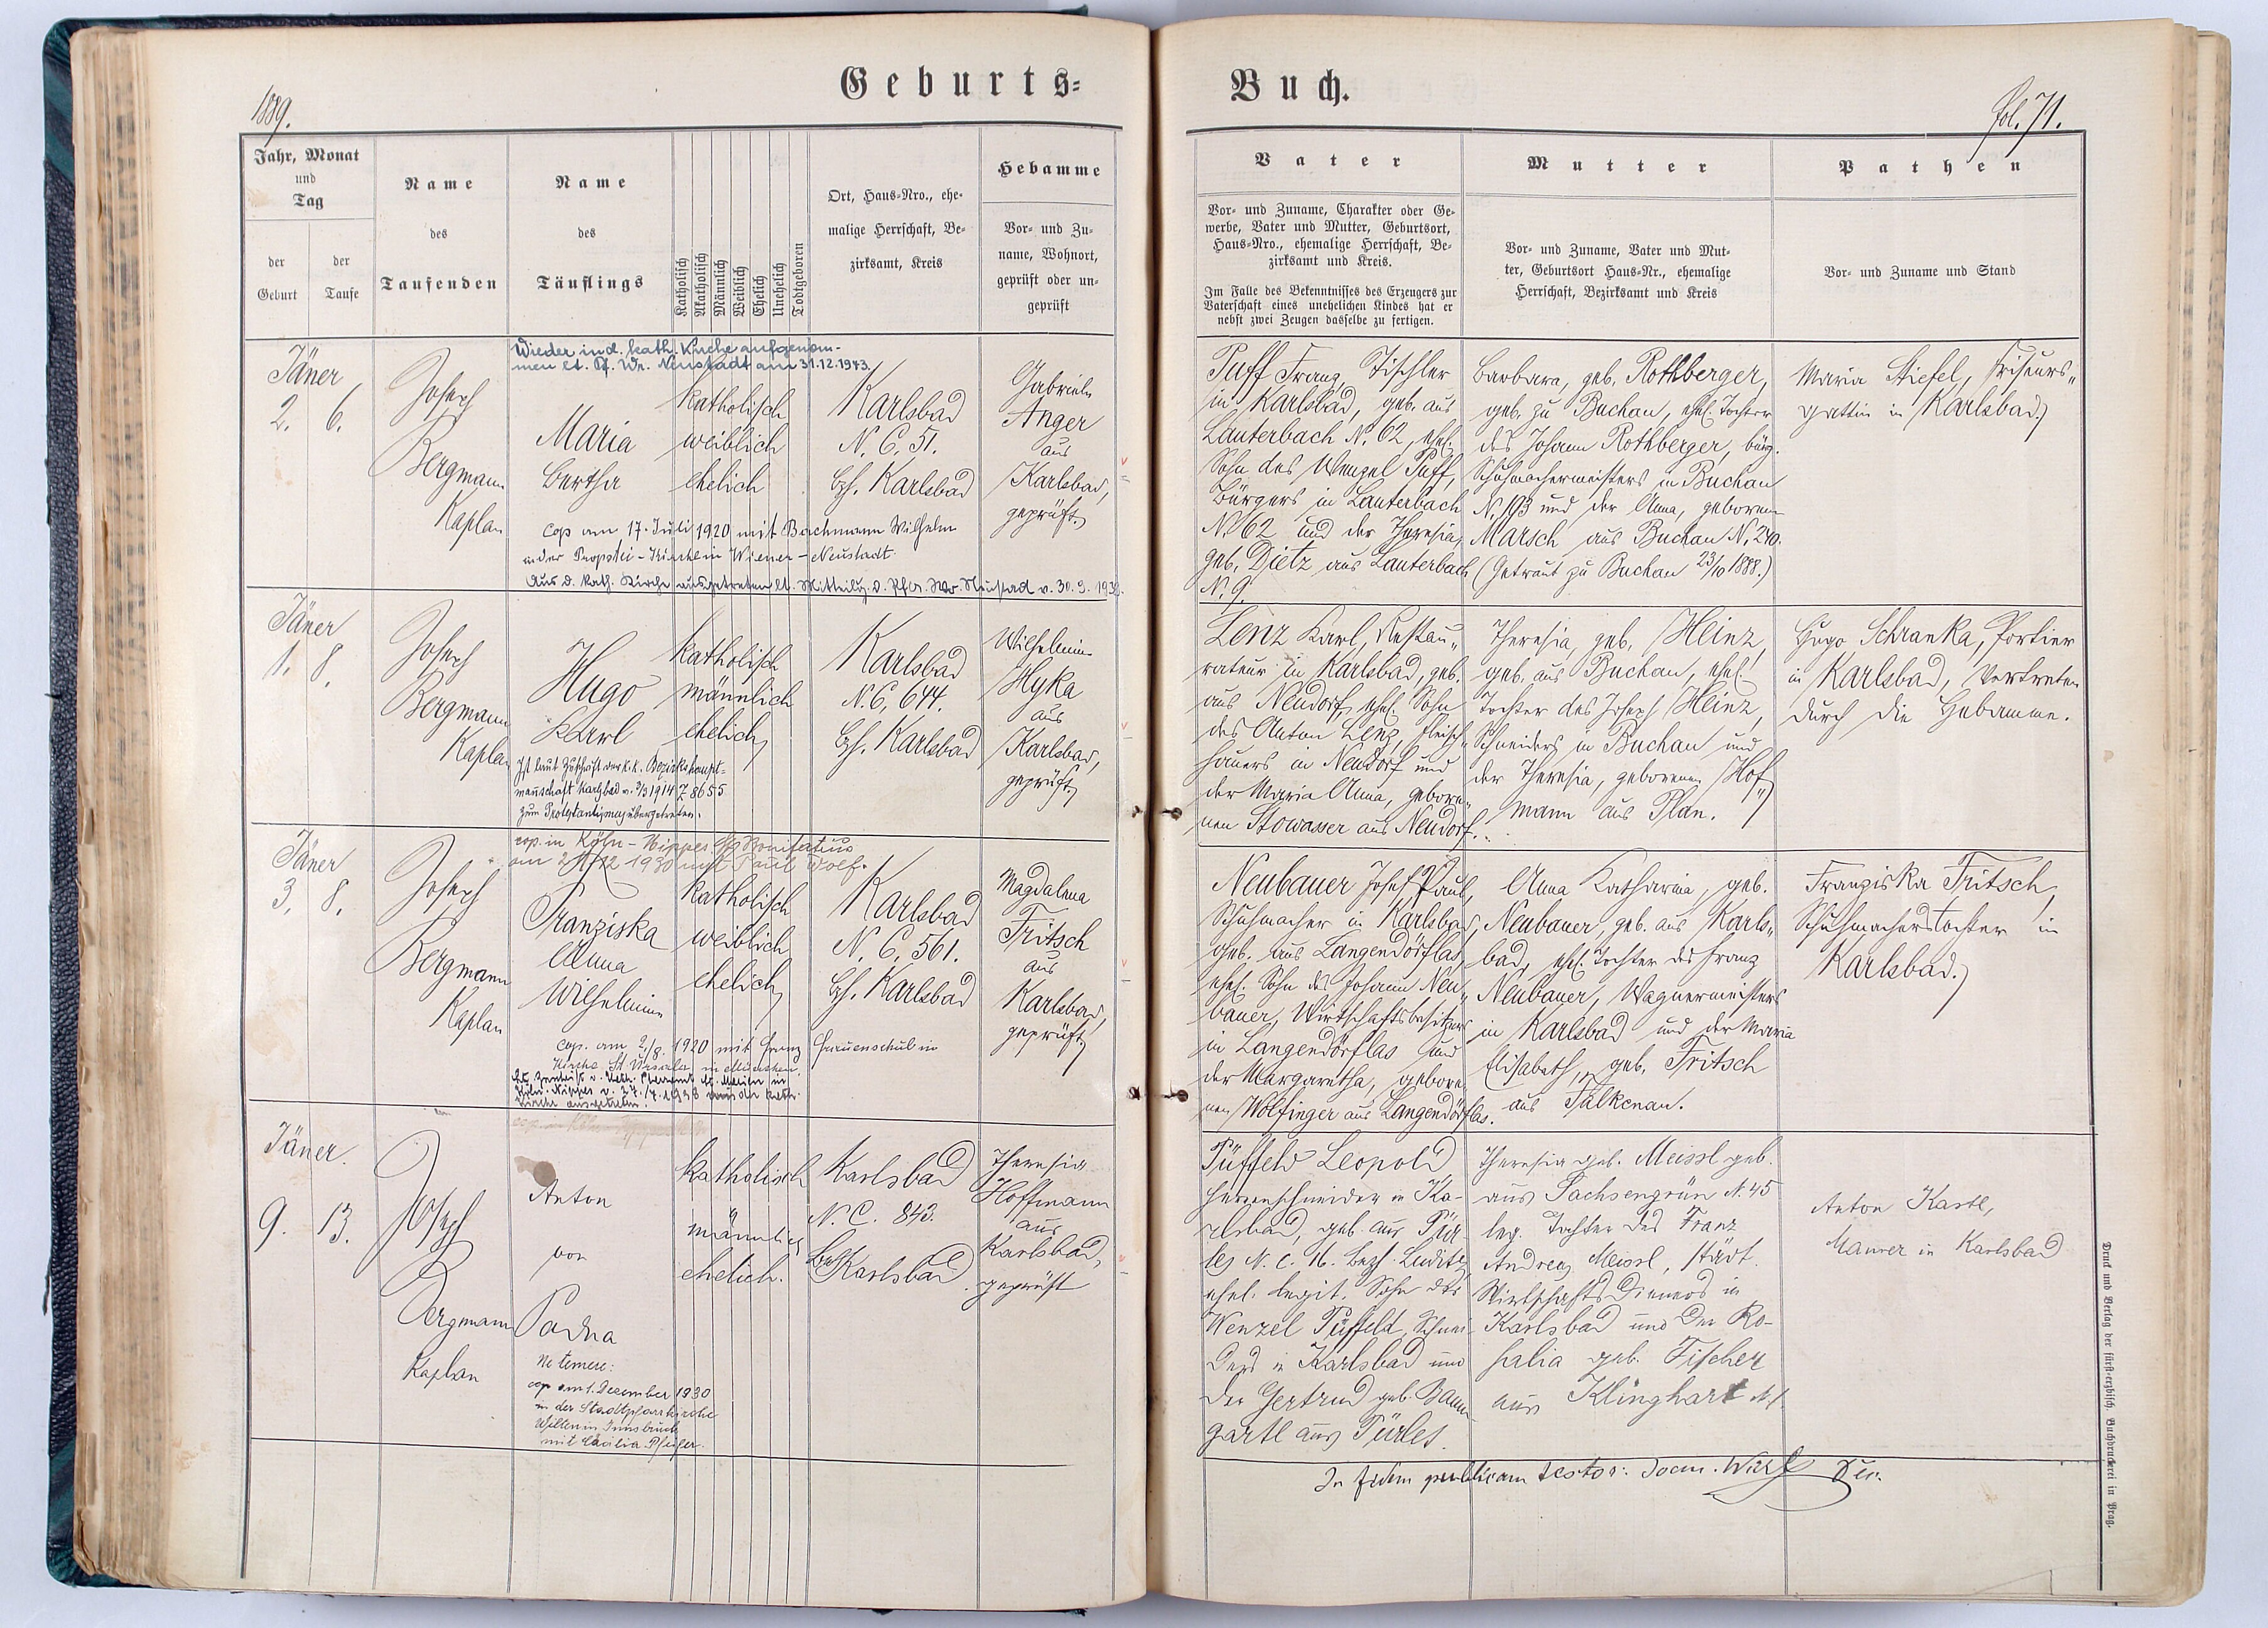 Geburts=
Buch.
1889.
fol. 71.
Jahr, Monat
und
Tag
der
Geburt
der
Taufe
Name
des
Taufenden
Name
des
Täuflings
Katholisch
Akatholisch
Männlich
Weiblich
Ehelich
Unehelich
Todtgeboren
Ort, Haus=Nro., ehe=
malige Herrschaft, Be=
zirksamt, Kreis
Hebamme
Vor= und Zu=
name, Wohnort,
geprüft oder un=
geprüft
Vater
Vor= und Zuname, Charakter oder Ge=
werbe, Vater und Mutter, Geburtsort,
Haus=Nro., ehemalige Herrschaft, Be=
zirksamt und Kreis.
Im Falle des Bekenntnisses des Erzeugers zur
Vaterschaft eines unehelichen Kindes hat er
nebst zwei Zeugen dasselbe zu fertigen.
Mutter
Vor= und Zuname, Vater und Mut=
ter, Geburtsort Haus=Nr., ehemalige
Herrschaft, Bezirksamt und Kreis
Pathen
Vor= und Zuname und Stand
Jäner
2. 6.
Joseph
Bergmann
Kaplan
Wieder in d. kath. Kirche aufgenom-
men lt. Pf. Wr. Neustadt am 31.12.1943.
Maria
Bertha
katholisch
weiblich
ehelich
Karlsbad
N. C. 51.
Bzh. Karlsbad
Gabriele
Anger
aus
Karlsbad,
geprüft.
cop am 17. Juli 1920 mit Bachmann Wilhelm
in der Propstei-Kirche in Wiener-Neustadt.
Aus d. kath. Kirche ausgetreten lt. Mitteilg. d. Pfa. Wr. Neustad v. 30.9.
Puff Franz, Tischler
in Karlsbad, geb. aus
Lauterbach N. 62, ehel.
Sohn des Wenzel Puff,
Bürgers in Lauterbach
N. 62 und der Theresia,
geb. Dietz aus Lauterbach
N. 9.
Barbara, geb. Rothberger,
geb. zu Buchau, ehel. Tochter
des Johann Rothberger, bürg.
Schuhmachermeisters in Buchau
N. 193 und der Anna, geborenen
Marsch aus Buchau N. 240.
(Getraut zu Buchau 23/10 1888.)
Maria Stiefel, Friseurs„
gattin in Karlsbad.
Jäner
1. 8.
Joseph
Bergmann
Kaplan
Hugo
Karl
Ist laut Zuschrift der k.k. Bezirkshaupt-
mannschaft Karlsbad v. 3/3 1914 Z 8655
zum Protestantismus übergetreten.
katholisch
männlich
ehelich
Karlsbad
N. C. 644.
Bzh. Karlsbad
Wilhelmine
Hyka
aus
Karlsbad,
geprüft.
Lenz Karl, Restau„
rateur in Karlsbad, geb.
aus Neudorf, ehel. Sohn
des Anton Lenz, Fleisch„
hauers in Neudorf und
der Maria Anna, gebore„
nen Stowasser aus Neudorf.
Theresia, geb. Heinz,
geb. aus Buchau, ehel.
Tochter des Joseph Heinz,
Schneiders in Buchau und
der Theresia, geborenen Hof„
mann aus Plan.
Hugo Schranka, Portier
in Karlsbad, vertreten
durch die Hebamme.
Jäner
3. 8.
Joseph
Bergmann
Kaplan
cop. in Köln-Nippes Bonifatius
1930 mit Paul Wolf.
Franziska
Anna
Wilhelmine
katholisch
weiblich
ehelich
Karlsbad
N. C. 561.
Bzh. Karlsbad
Magdalena
Fritsch
aus
Karlsbad,
geprüft.
cop. am 2./8. 1920 mit
Kirche St. Ursula in München.
Kirche ausgetreten.
Neubauer Josef Paul,
Schuhmacher in Karlsbad,
geb. aus Langendörflas,
ehel. Sohn des Johann Neu„
bauer, Wirtschaftsbesitzers
in Langendörflas und
der Margaretha, gebore„
nen Wolfinger aus Langendörflas.
Anna Katharina, geb.
Neubauer, geb. aus Karls„
bad, ehel. Tochter des Franz
Neubauer, Wagnermeisters
in Karlsbad und der Maria
Elisabeth, geb. Fritsch
aus Falkenau.
Franziska Fritsch,
Schuhmacherstochter in
Karlsbad.
Jäner.
9. 13.
Joseph
Bergmann
Kaplan
Anton
von
Padua
Ne temere:
cop am 1. Dezember 1930
in der Stadtpfarrkirche
Wilten in Innsbruck
mit Cäcilia Pfeifer.
katholisch
männlich
ehelich.
Karlsbad
N. C. 843.
Bzh Karlsbad
Theresia
Hoffmann
aus
Karlsbad,
geprüft
Püffeld Leopold
Herrenschneider in Ka-
rlsbad, geb. aus Pür-
les N. C. 16. Bezh. Luditz
ehel. legit. Sohn des
Wenzel Püffeld, Schnei-
ders in Karlsbad und
der Gertrud geb. Baum-
gartl aus Pürles.
Theresia geb. Meissl geb.
aus Sachsengrün N. 45
leg. Tochter des Franz
Andreas Meissl, städt.
Wirtschafts Dieners in
Karlsbad und der Ro-
salia geb. Fischer
aus Klinghart N 1.
Anton Karte,
Maurer in Karlsbad
In fidem publicam testor: Wurf Dec.
Druck und Verlag der fürst=erzbisch. Buchdruckerei in Prag.